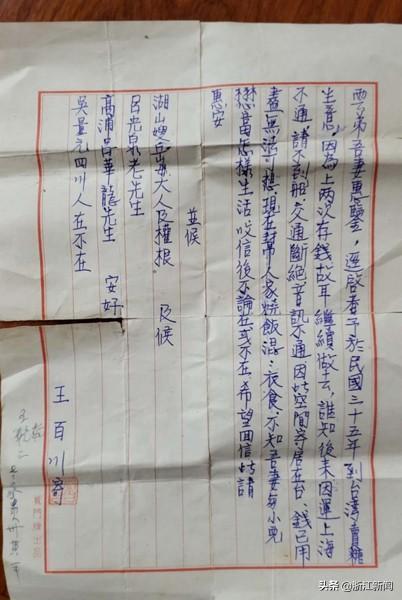 雲弟吾妻惠鑒,逕啓者予於民國三十五年到台灣賣糖
生意,因為上兩次存錢故耳繼續做去,誰知後來因運上海
不通,請不到船,交通斷絕音訊不通因此空間寄居在台,錢已用
盡無涉可想,現在幫人家燒飯混衣食,不知吾妻每小兒
懋苗怎樣生活,收信後不論在或不在,希望回信,此請
惠安
並候
湖山嫂岳母大人及權根 及候
呂光泉老先生
高浦呂華龍先生 安好
吳量元四川人在不在
王百川寄
頭條 @浙江新闻